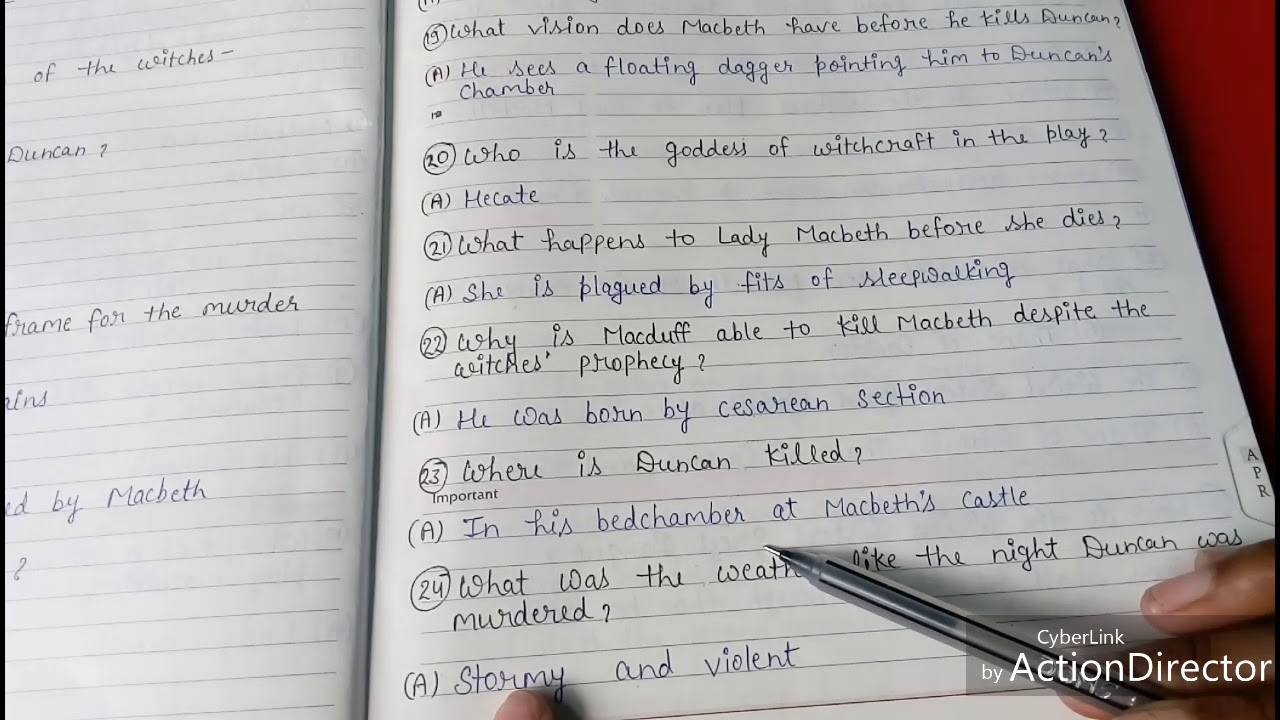 of the witches-
Duncan?
frame for the murder
by Macbeth
?
(19) What vision does Macbeth have before he kills Duncan?
(A) He sees a floating dagger pointing him to Duncan's
chamber
(20) Who is the goddess of witchcraft in the play?
(A) Hecate
(21) What happens to Lady Macbeth before she dies?
(A) She is plagued by fits of sleepwalking
(22) Why is Macduff able to kill Macbeth despite the
witches' prophecy?
(A) He was born by cesarean section
(23) Where is Duncan killed?
Important
(A) In his bedchamber at Macbeth's castle
(24) What was the like the night Duncan was
murdered?
(A) Stormy and violent
APR
CyberLink
by ActionDirector